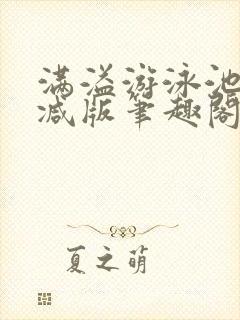 满溢游泳池
减版笔趣阁
夏之萌